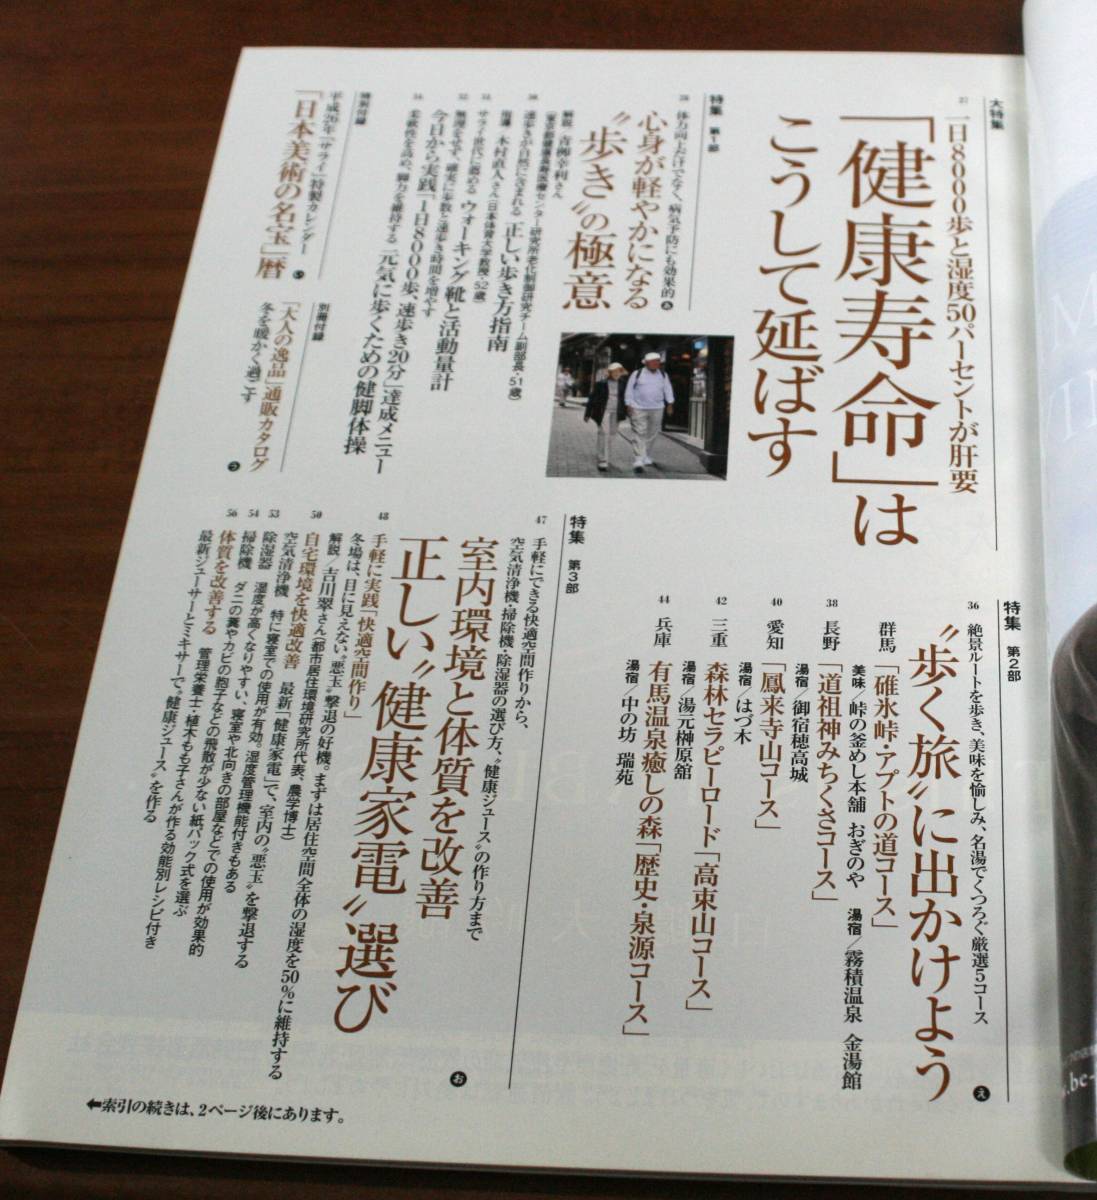 大特集
27 一日8000歩と湿度50パーセントが肝要
「健康寿命」は
こうして延ばす
特集 第1部
28 体力向上だけでなく、病気予防にも効果的
心身が軽やかになる
“歩き”の極意
解説/青栁幸利さん
(東京都健康長寿医療センター研究所老化制御研究チーム副部長・51歳)
速歩きが自然に生まれる「正しい歩き方指南」
指導/木村直人さん(日本体育大学教授・52歳)
サライ世代に薦める ウォーキング靴と活動量計
無理をせず、確実に歩数と速歩き時間を増やす
今日から実践「1日8000歩、速歩き20分」達成メニュー
柔軟性を高め、脚力を維持する 元気に歩くための健脚体操
特別付録
平成26年『サライ』特製カレンダー
「日本美術の名宝」暦
別冊付録
「大人の逸品」通販カタログ
冬を暖かく過ごす
う
特集 第2部
36 絶景ルートを歩き、美味を愉しみ、名湯でくつろぐ厳選5コース
“歩く旅”に出かけよう
え
群馬 「碓氷峠・アプトの道コース」
美味/峠の釜めし本舗 おぎのや 湯宿/霧積温泉 金湯館
38 長野 「道祖神みちくさコース」
湯宿/御宿穂高城
40 愛知 「鳳来寺山コース」
湯宿/はづ木
42 三重 森林セラピーロード「高束山コース」
湯宿/湯元榊原舘
44 兵庫 有馬温泉癒しの森「歴史・泉源コース」
湯宿/中の坊 瑞苑
特集 第3部
47 手軽にできる快適空間作りから、
空気清浄機・掃除機・除湿器の選び方、“健康ジュース”の作り方まで
室内環境と体質を改善
正しい“健康家電”選び
お
48 手軽に実践「快適空間作り」
冬場は、目に見えない“悪玉”撃退の好機。まずは居住空間全体の湿度を50%に維持する
解説/吉川翠さん(都市居住環境研究所代表、農学博士)
50 自宅環境を快適改善 最新「健康家電」で、室内の“悪玉”を撃退する
空気清浄機 特に寝室での使用が有効。湿度管理機能付きもある
53 除湿器 湿度が高くなりやすい、寝室や北向きの部屋などでの使用が効果的
54 掃除機 ダニの糞やカビの胞子などの飛散が少ない紙パック式を選ぶ
56 体質を改善する 管理栄養士・植木もも子さんが作る効能別レシピ付き
最新ジューサーとミキサーで“健康ジュース”を作る
⬅索引の続きは、2ページ後にあります。